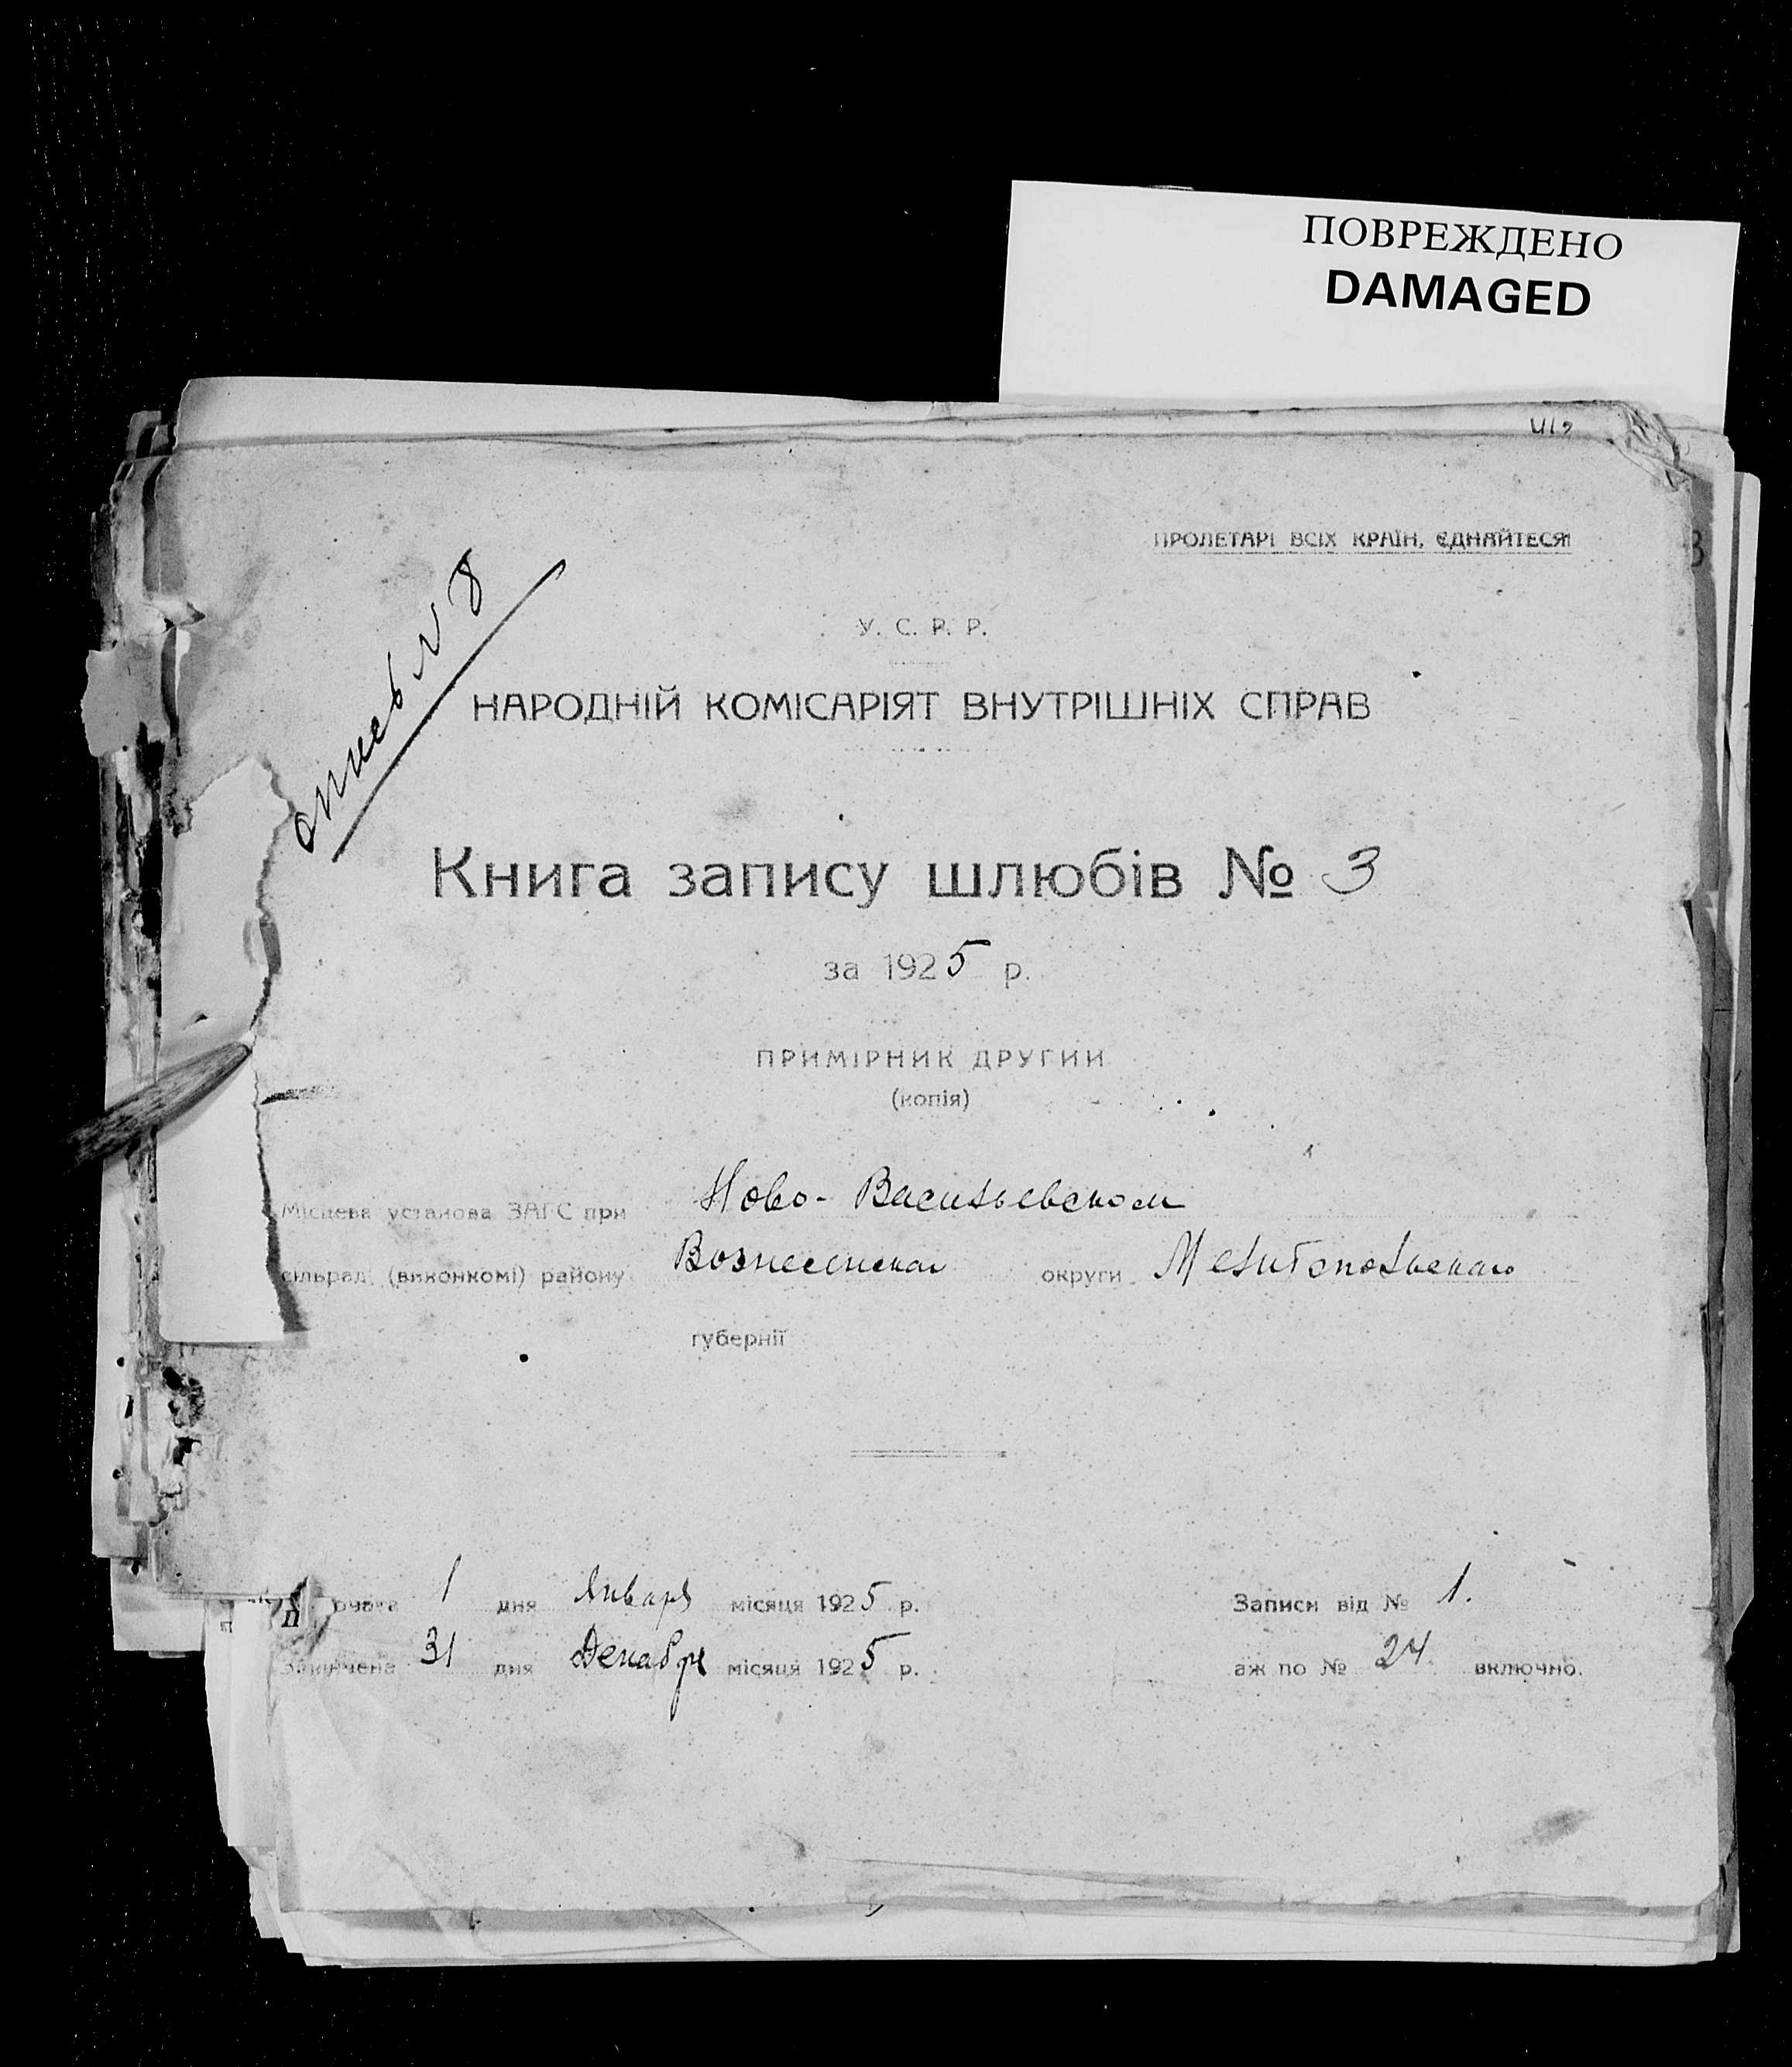 ПОВРЕЖДЕНО
DAMAGED
ПРОЛЕТАРІ ВСІХ КРАЇН, ЄДНАЙТЕСЯ!
опись № 8
У. С. Р. Р.
НАРОДНІЙ КОМІСАРІЯТ ВНУТРІШНІХ СПРАВ
Книга запису шлюбів № 3
за 1925 р.
ПРИМІРНИК ДРУГИЙ
(копія)
Місцева установа ЗАГС при Ново-Васильевском
сільрад. (виконкомі) району Вознесенской округи Мелитопольской
губернії
очата 1 дня Января місяця 1925 р. Записи від № 1.
Закінчена 31 дня Декабря місяця 1925 р. аж по № 24 включно.